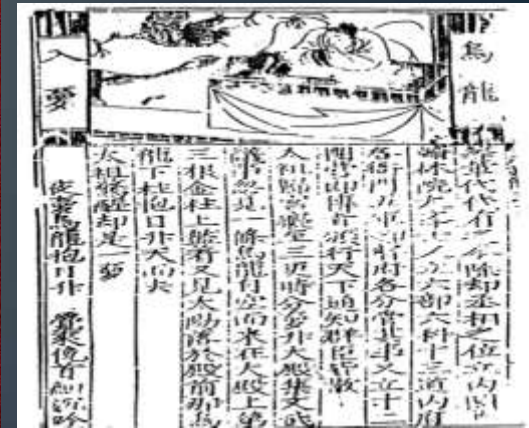 烏龍
入夢
華代代有之今除却丞相之位立內閣
翰林院六部六科十三道內府
各衙門五軍府各分管其事又立十二
即傳旨頒行天下知群臣皆散
太祖歸宮寢至三更時分夢升大殿集文武
議事忽見一條烏龍自空而來在大殿上第
三根金柱上盤着又見太陽落於殿前那烏
龍下柱抱日升天而去
太祖驚醒却是一夢
夜夢烏龍抱日升 覺來俛首細沉吟